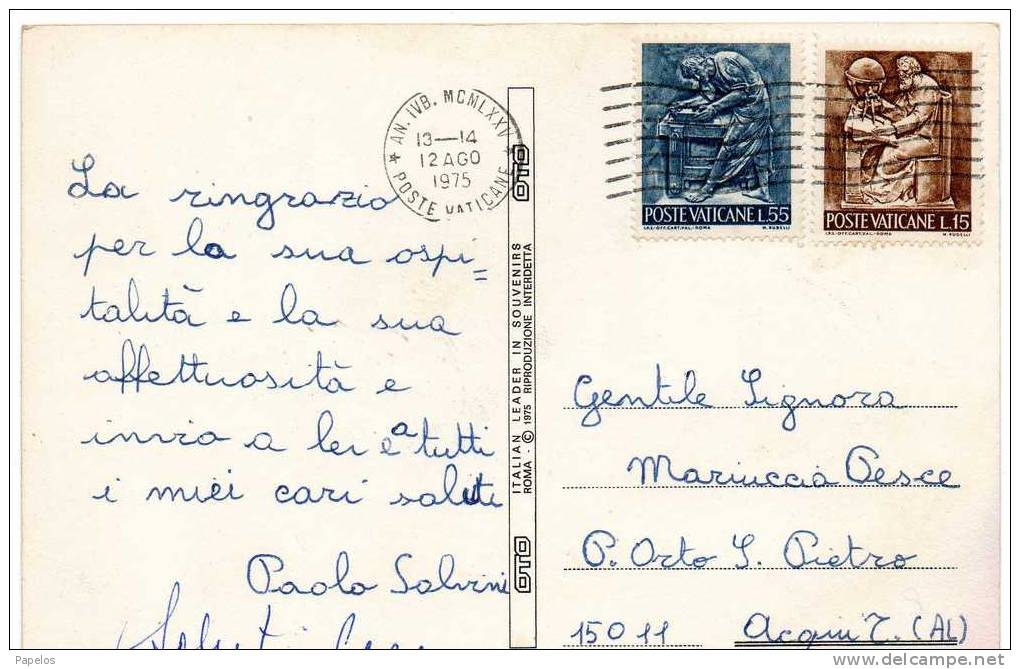 AN. IVB. MCMLXXV
13—14
12 AGO
1975
POSTE VATICANE
POSTE VATICANE L.55
I.P.S.-OFF.CART.VAL.-ROMA M. RUDELLI
POSTE VATICANE L.15
I.P.S.-OFF.CART.VAL.-ROMA M. RUDELLI
La ringrazio
per la sua ospi=
talità e la sua
affettuosità e
invio a lei e a tutti
i miei cari saluti
Paolo Salvini
Saluti
OTO
ITALIAN LEADER IN SOUVENIRS
ROMA - © 1975 RIPRODUZIONE INTERDETTA
OTO
Gentile Signora
Mariuccia Pesce
P. Orto S. Pietro
15011 Acqui T. (AL)
Papelos
www.delcampe.net